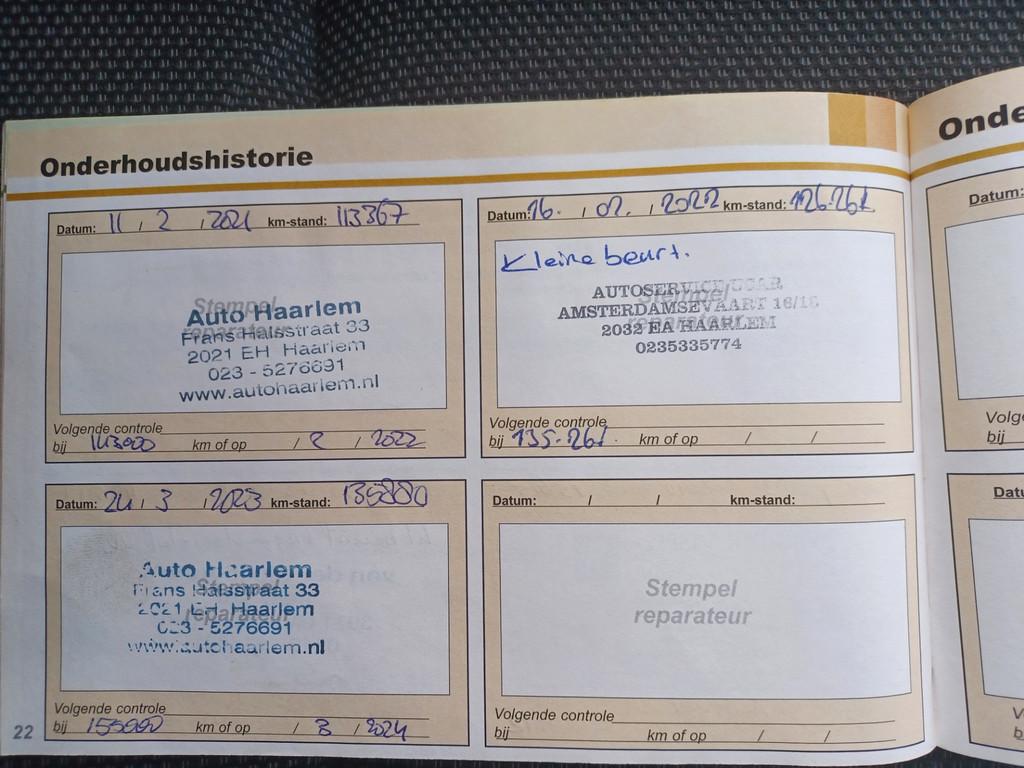 Onderhoudshistorie
Datum: 11 / 2 / 2021 km-stand: 113367
Stempel
reparateur
Auto Haarlem
Frans Halsstraat 33
2021 EH Haarlem
023 - 5276691
www.autohaarlem.nl
Volgende controle
bij km of op / 2 / 2022
Datum: 16. / 02. / 2022 km-stand: 126.261
Kleine beurt.
Stempel
reparateur
AMSTERDAMSEVAART 16/18
2032 EA HAARLEM
0235335774
Volgende controle
bij 135.261. km of op / /
Datum: 24 / 3 / 2023 km-stand: 135880
Stempel
reparateur
Auto Haarlem
Frans Halsstraat 33
2021 EH Haarlem
023 - 5276691
www.autohaarlem.nl
Volgende controle
bij 155000 km of op / 3 / 2024
Datum: / / km-stand:
Stempel
reparateur
Volgende controle
bij km of op / /
22
Onde
Datum:
Volg
bij
Datu
V
b